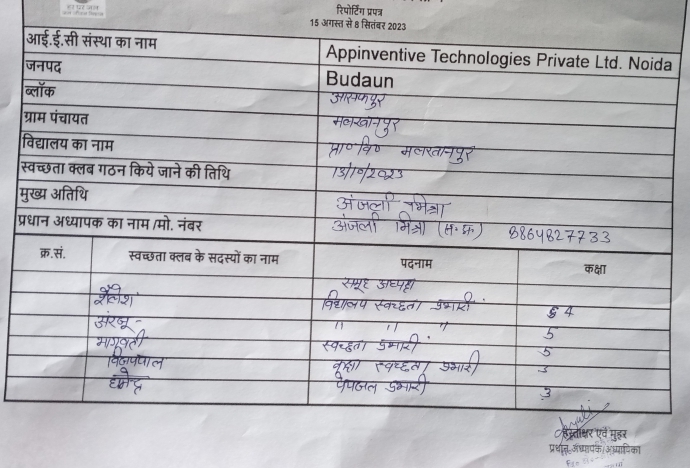 हर घर जल
रिपोर्टिंग प्रपत्र
15 अगस्त से 8 सितंबर 2023
आई.ई.सी संस्था का नाम Appinventive Technologies Private Ltd. Noida
जनपद Budaun
ब्लॉक आसफपुर
ग्राम पंचायत मलखानपुर
विद्यालय का नाम प्रा० वि० मलखानपुर
स्वच्छता क्लब गठन किये जाने की तिथि 13/10/2023
मुख्य अतिथि अंजली
प्रधान अध्यापक का नाम /मो. नंबर अंजली मिश्रा (स. प्र.) 8864827733
क्र.सं. स्वच्छता क्लब के सदस्यों का नाम पदनाम कक्षा
समूह अध्यक्ष
शैलेश विद्यालय स्वच्छता प्रभारी 4
" " " 5
भागवती स्वच्छता प्रभारी 5
विजयपाल कक्षा स्वच्छता प्रभारी
पेयजल प्रभारी 3
हस्ताक्षर एवं मुहर
प्रधान अध्यापक/अध्यापिका